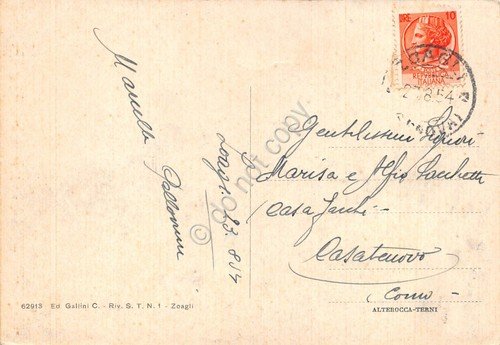 LIRE 10
REPUBBLICA
ITALIANA
ZOAGLI
27.8.54
(GENOVA)
Marcella
Zoagli 23.8.54
Gentilissimi Signori
Marisa e Alfio Sacchetti
Casa
Casatenovo
Como
© do not copy
62913 Ed Gallini C. - Riv. S. T. N. 1 - Zoagli
ALTEROCCA-TERNI